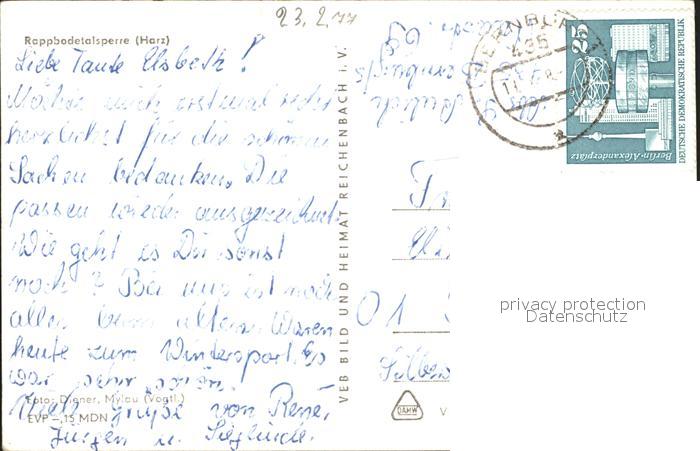 23.2.77
Rappbodetalsperre (Harz)
Liebe Tante Elsbeth!
Möchte mich erstmal recht
herzlichst für die schönen
Sachen bedanken. Die
passen wieder ausgezeichnet.
Wie geht es Dir sonst
noch? Bei uns ist noch
alles beim alten. Waren
heute zum Wintersport. Es
war sehr schön!
Foto: Diener, Mylau (Vogtl.)
Viele Grüße von René,
EVP -,15 MDN
Jürgen u. Sieglinde.
VEB BILD UND HEIMAT REICHENBACH I. V.
BERNBURG
435
25
Berlin-Alexanderplatz
DEUTSCHE DEMOKRATISCHE REPUBLIK
privacy protection
Datenschutz
DAMW
V